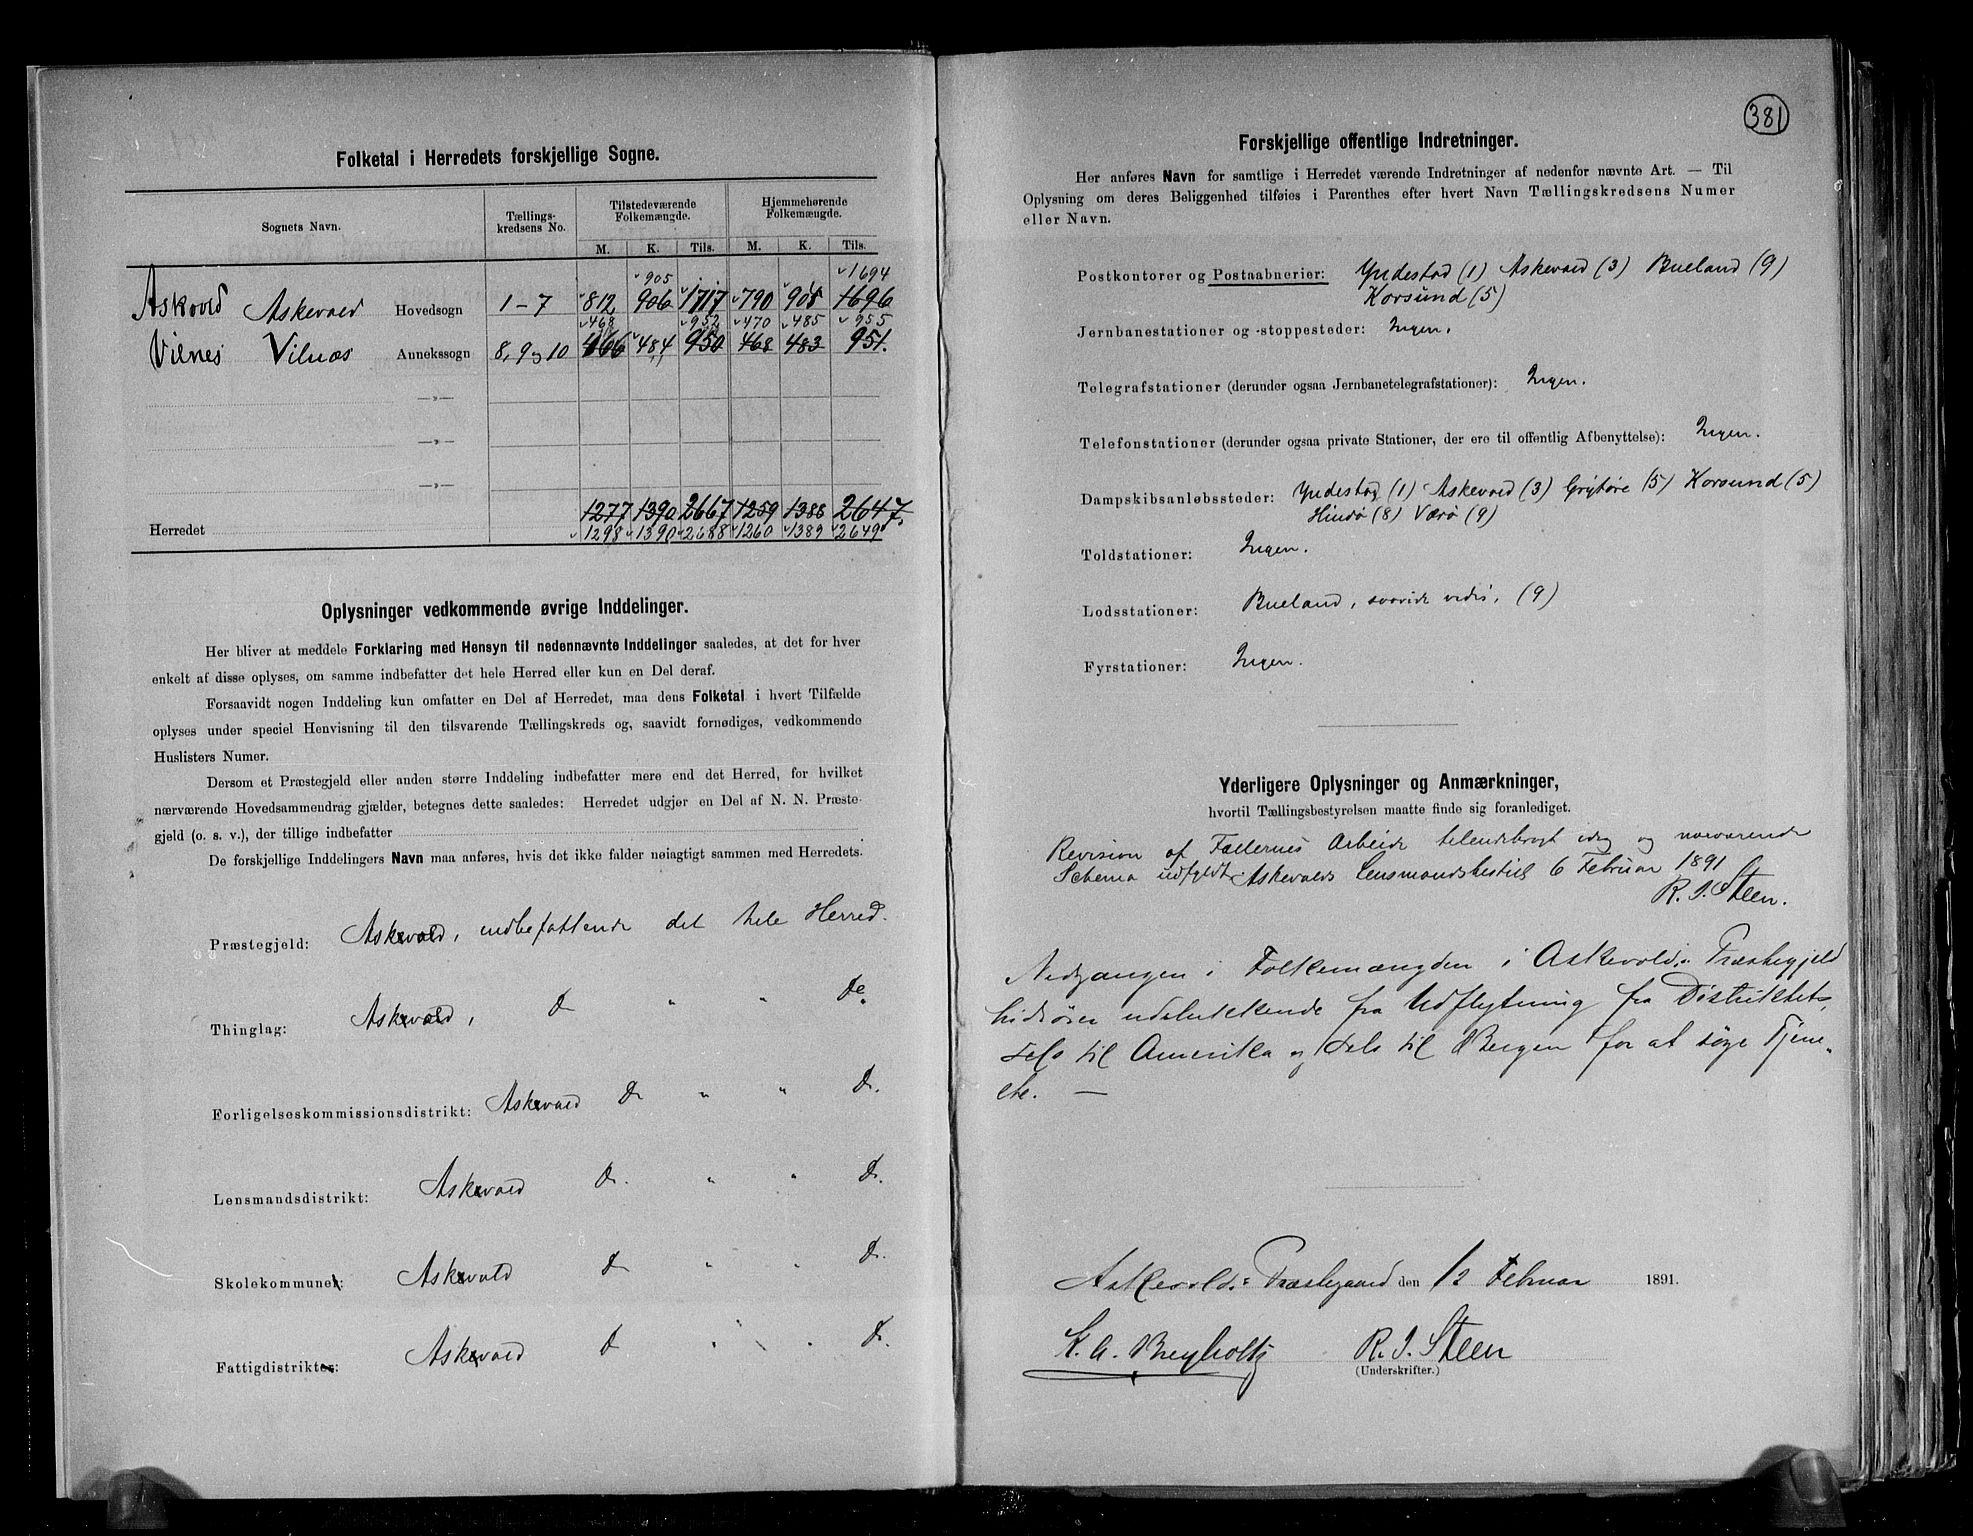 Folketal i Herredets forskjellige Sogne.
Sognets Navn. Tællings-kredsens No. Tilstedeværende Folkemængde. Hjemmehørende Folkemængde.
M. K. Tils. M. K. Tils.
905 1694
Askvold Askevold Hovedsogn 1-7 812 906 1717 790 905 1696
468 952 470 485 955
Vilnes Vilnæs Annekssogn 8, 9 og 10 466 484 950 468 483 951.
—»—
—»—
—»—
1277 1390 2667 1259 1388 2647.
Herredet 1298 1390 2688 1260 1389 2649
Oplysninger vedkommende øvrige Inddelinger.
Her bliver at meddele Forklaring med Hensyn til nedennævnte Inddelinger saaledes, at det for hver
enkelt af disse oplyses, om samme indbefatter det hele Herred eller kun en Del deraf.
Forsaavidt nogen Inddeling kun omfatter en Del af Herredet, maa dens Folketal i hvert Tilfælde
oplyses under speciel Henvisning til den tilsvarende Tællingskreds og, saavidt fornødiges, vedkommende
Huslisters Numer.
Dersom et Præstegjeld eller anden større Inddeling indbefatter mere end det Herred, for hvilket
nærværende Hovedsammendrag gjælder, betegnes dette saaledes: Herredet udgjør en Del af N. N. Præste-
gjeld (o. s. v.), der tillige indbefatter
De forskjellige Inddelingers Navn maa anføres, hvis det ikke falder nøiagtigt sammen med Herredets.
Præstegjeld: Askevold, indbefattende det hele Herred.
Thinglag: Askevold, Do " " Do
Forligelseskommissionsdistrikt: Askevold Do " " Do.
Lensmandsdistrikt: Askevold Do. " " Do.
Skolekommuner: Askevold Do " " Do.
Fattigdistrikter: Askevold Do " " Do.
381
Forskjellige offentlige Indretninger.
Her anføres Navn for samtlige i Herredet værende Indretninger af nedenfor nævnte Art. — Til
Oplysning om deres Beliggenhed tilføies i Parenthes efter hvert Navn Tællingskredsens Numer
eller Navn.
Postkontorer og Postaabnerier: Yndestad (1) Askevold (3) Bueland (9)
Korsund (5)
Jernbanestationer og -stoppesteder: Ingen.
Telegrafstationer (derunder ogsaa Jernbanetelegrafstationer): Ingen.
Telefonstationer (derunder ogsaa private Stationer, der ere til offentlig Afbenyttelse): Ingen.
Dampskibsanløbssteder: Yndestad (1) Askevold (3) Grytøre (5) Korsund (5)
Hindø (8) Værø (9)
Toldstationer: Ingen.
Lodsstationer: Bueland, (9)
Fyrstationer: Ingen.
Yderligere Oplysninger og Anmærkninger,
hvortil Tællingsbestyrelsen maatte finde sig foranlediget.
Revision af Tællernes Arbeide tilendebragt idag og nærværende
Schema udfyldt. Askevolds Lensmandsbestil 6 Februar 1891
R. J. Steen.
Nedgangen i Folkemængden i Askevolds Præstegjeld
hidrører udelukkende fra Udflytning fra Distriktet,
dels til Amerika og dels til Bergen for at søge Tjene-
ste. —
Askevolds Præstegaard den 12 Februar 1891.
K. A. Breyholtz R. J. Steen
(Underskrifter.)